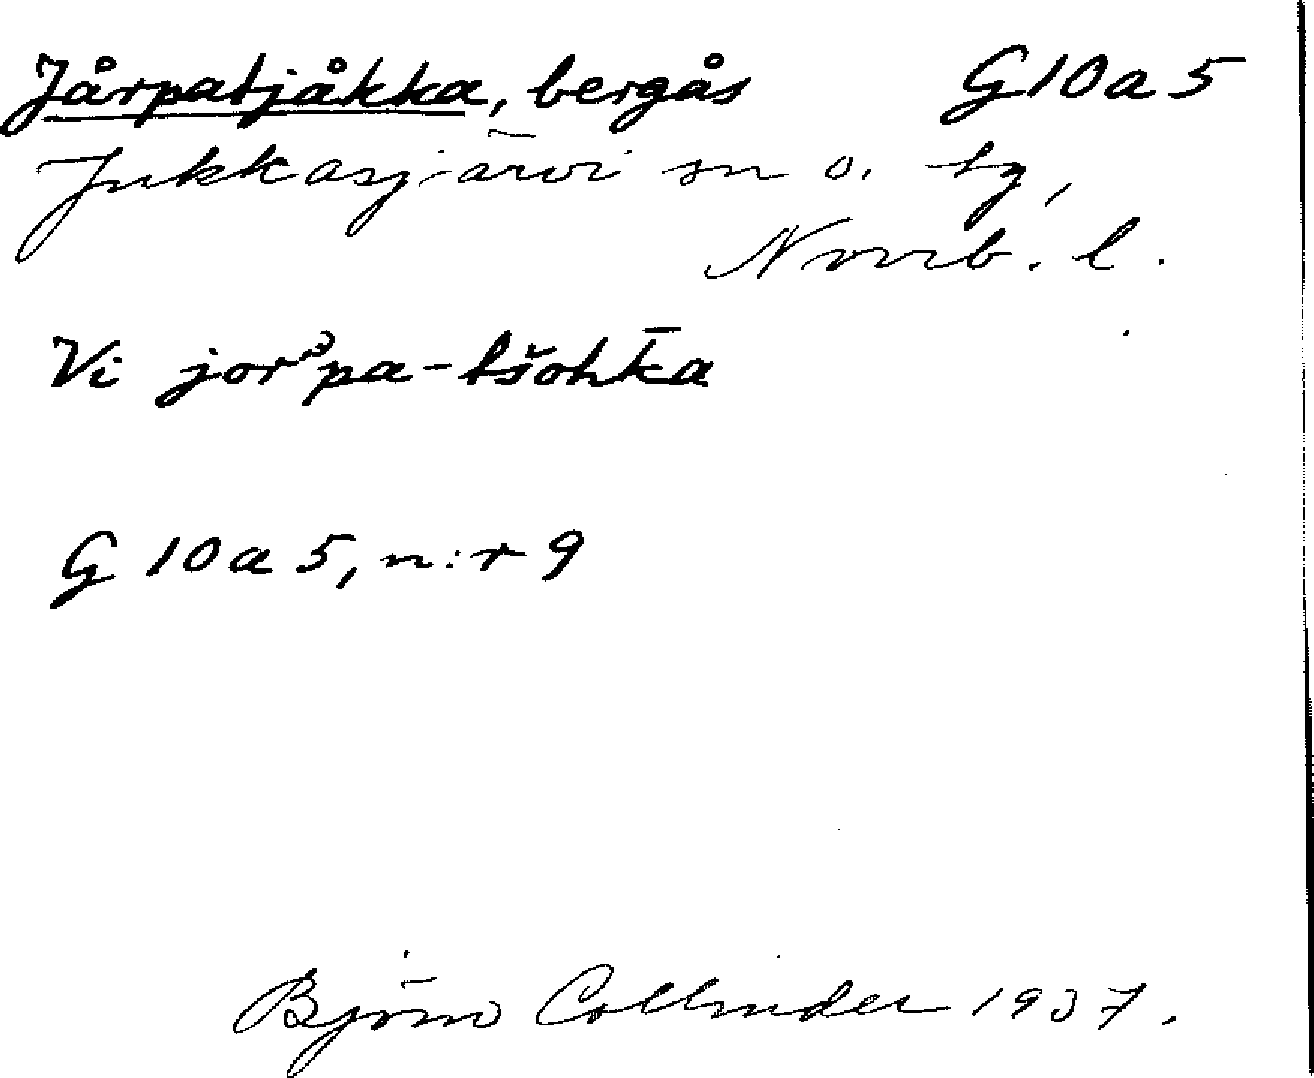 Jårpatjåkka, bergås G10a5
Jukkasjärvi sn o. tg,
Norrb. l.
Vi jorᵊpa-tšoh̄ka
G 10a 5, n:r 9
Björn Collinder 1937.